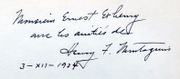 Monsieur Ernest
avec les amitiés de
Henry F. Montagnier
3-XII-1924